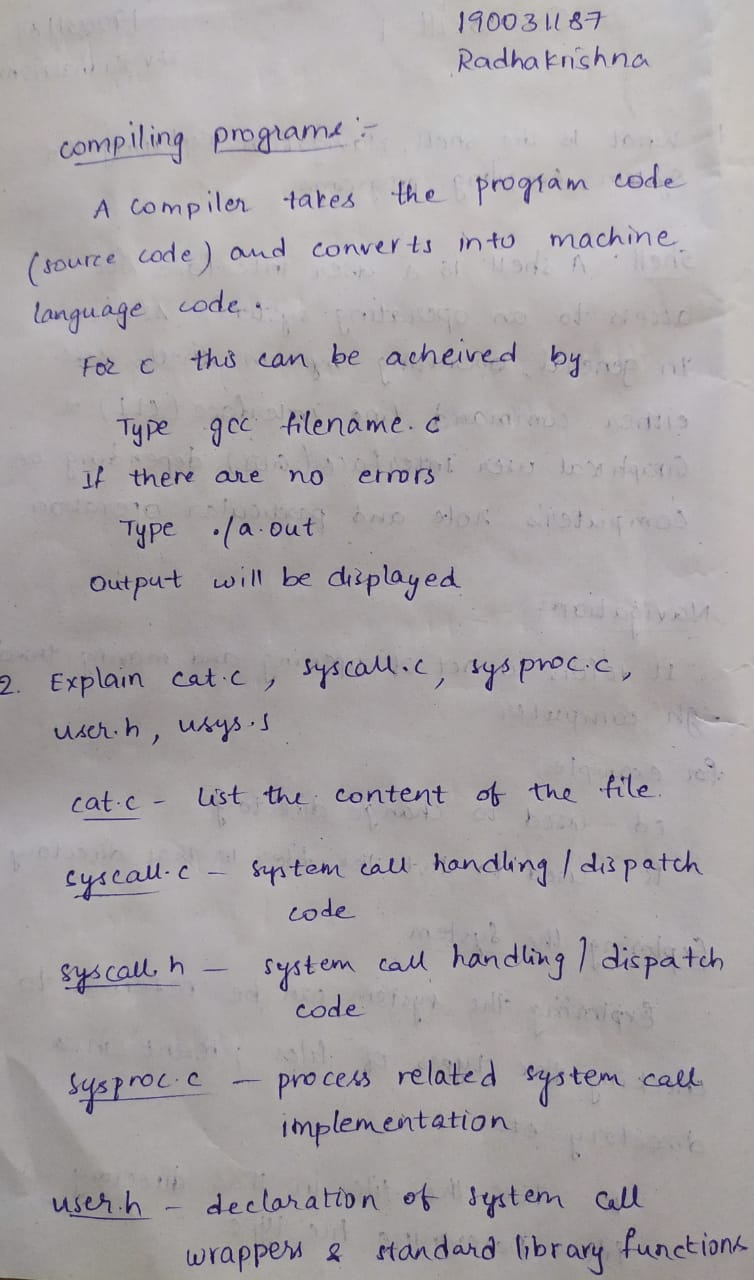 190031187
Radhakrishna
compiling programs :-
A compiler takes the program code
(source code) and converts into machine
language code.
For c this can be acheived by
Type gcc filename.c
If there are no errors
Type ./a.out
output will be displayed
2. Explain cat.c, syscall.c, sysproc.c,
user.h, usys.s
cat.c - list the content of the file.
syscall.c - system call handling / dispatch
code
syscall.h - system call handling / dispatch
code
sysproc.c - process related system call
implementation
user.h - declaration of system call
wrappers & standard library functions